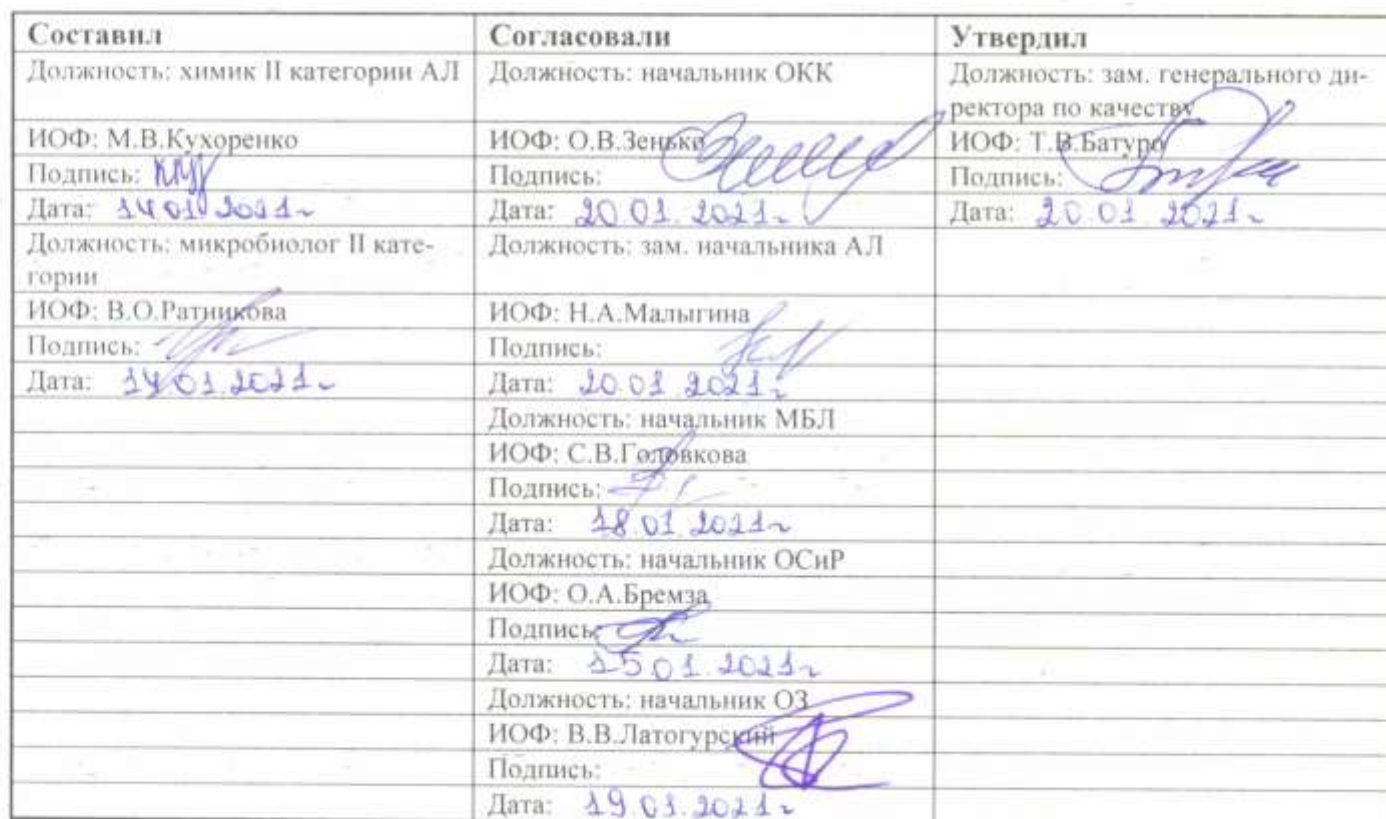 Составил Согласовали Утвердил
Должность: химик II категории АЛ Должность: начальник ОКК Должность: зам. генерального ди-
ректора по качеству
ИОФ: М.В.Кухоренко ИОФ: О.В.Зенько ИОФ: Т.В.Батуро
Подпись: Подпись: Подпись:
Дата: 14 01 2021г Дата: 20 01. 2021г Дата: 20 01. 2021г
Должность: микробиолог II кате- Должность: зам. начальника АЛ
гории
ИОФ: В.О.Ратникова ИОФ: Н.А.Малыгина
Подпись: Подпись:
Дата: 14.01.2021г Дата: 20.01 2021г
Должность: начальник МБЛ
ИОФ: С.В.Головкова
Подпись:
Дата: 18.01.2021г
Должность: начальник ОСиР
ИОФ: О.А.Бремза
Подпись:
Дата: 15.01.2021г
Должность: начальник ОЗ
ИОФ: В.В.Латогурский
Подпись:
Дата: 19.01.2021г